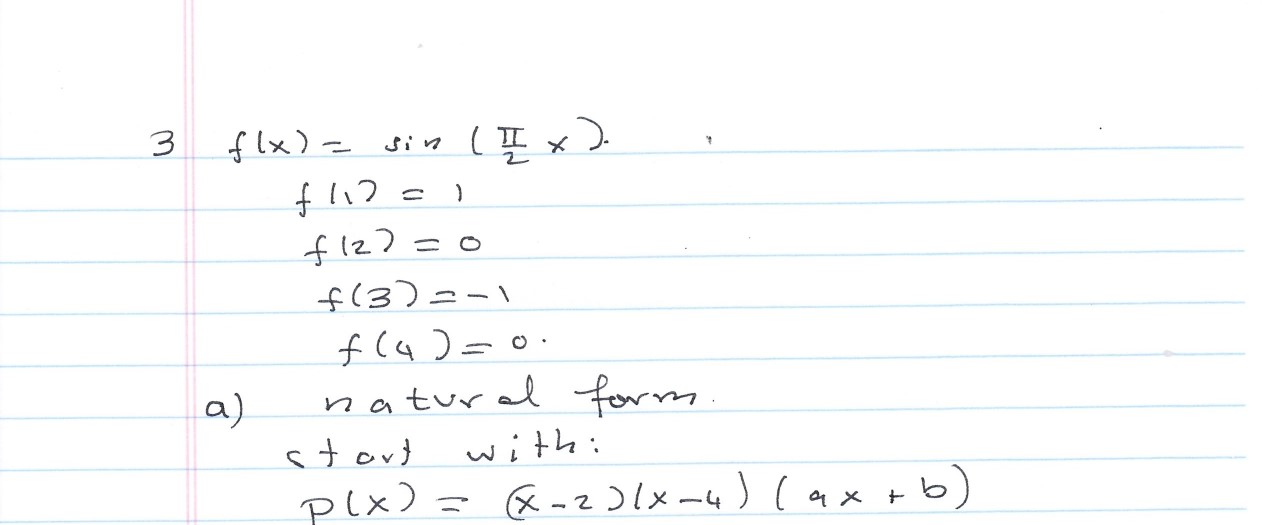 3 f(x) = sin (π/2 x).
f(1) = 1
f(2) = 0
f(3) = -1
f(4) = 0.
a) natural form.
start with:
p(x) = (x-2)(x-4)(ax+b)